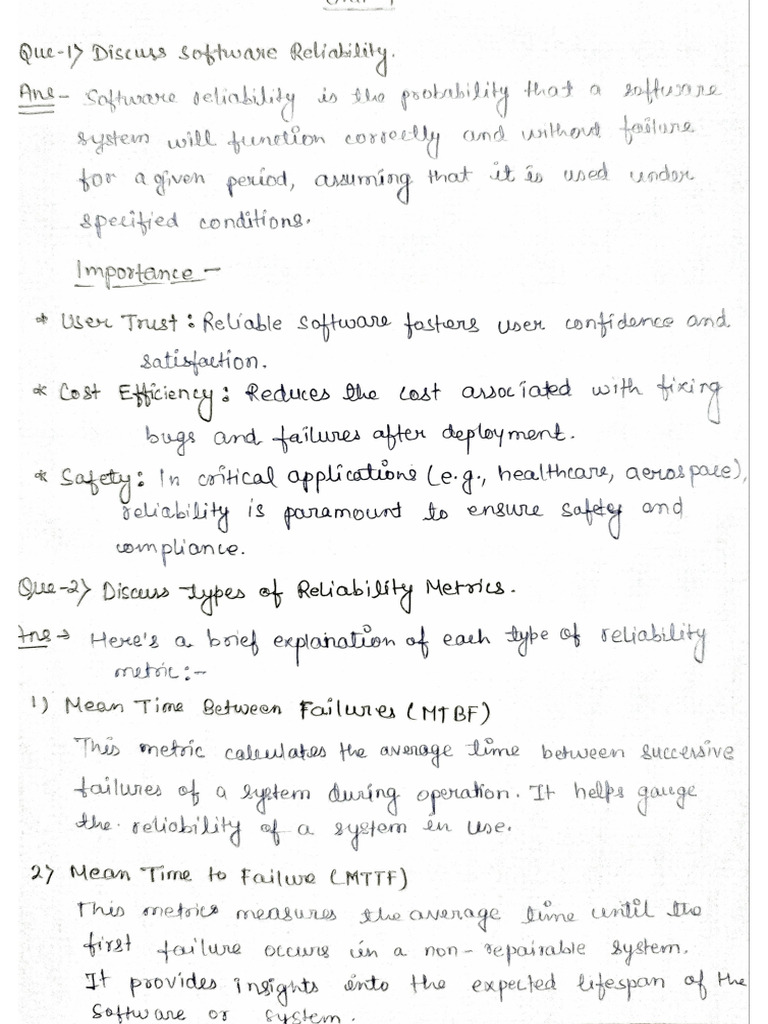 Que-1> Discuss Software Reliability.
Ans - Software reliability is the probability that a software
system will function correctly and without failure
for a given period, assuming that it is used under
specified conditions.
Importance -
* User Trust : Reliable software fosters user confidence and
satisfaction.
* Cost Efficiency : Reduces the cost associated with fixing
bugs and failures after deployment.
* Safety : In critical applications (e.g., healthcare, aerospace),
reliability is paramount to ensure safety and
compliance.
Que-2> Discuss types of Reliability Metrics.
Ans → Here's a brief explanation of each type of reliability
metric :-
1) Mean Time Between Failures (MTBF)
This metric calculates the average time between successive
failures of a system during operation. It helps gauge
the reliability of a system in use.
2) Mean Time to Failure (MTTF)
This metrics measures the average time until the
first failure occurs in a non-repairable system.
It provides insights into the expected lifespan of the
software or system.